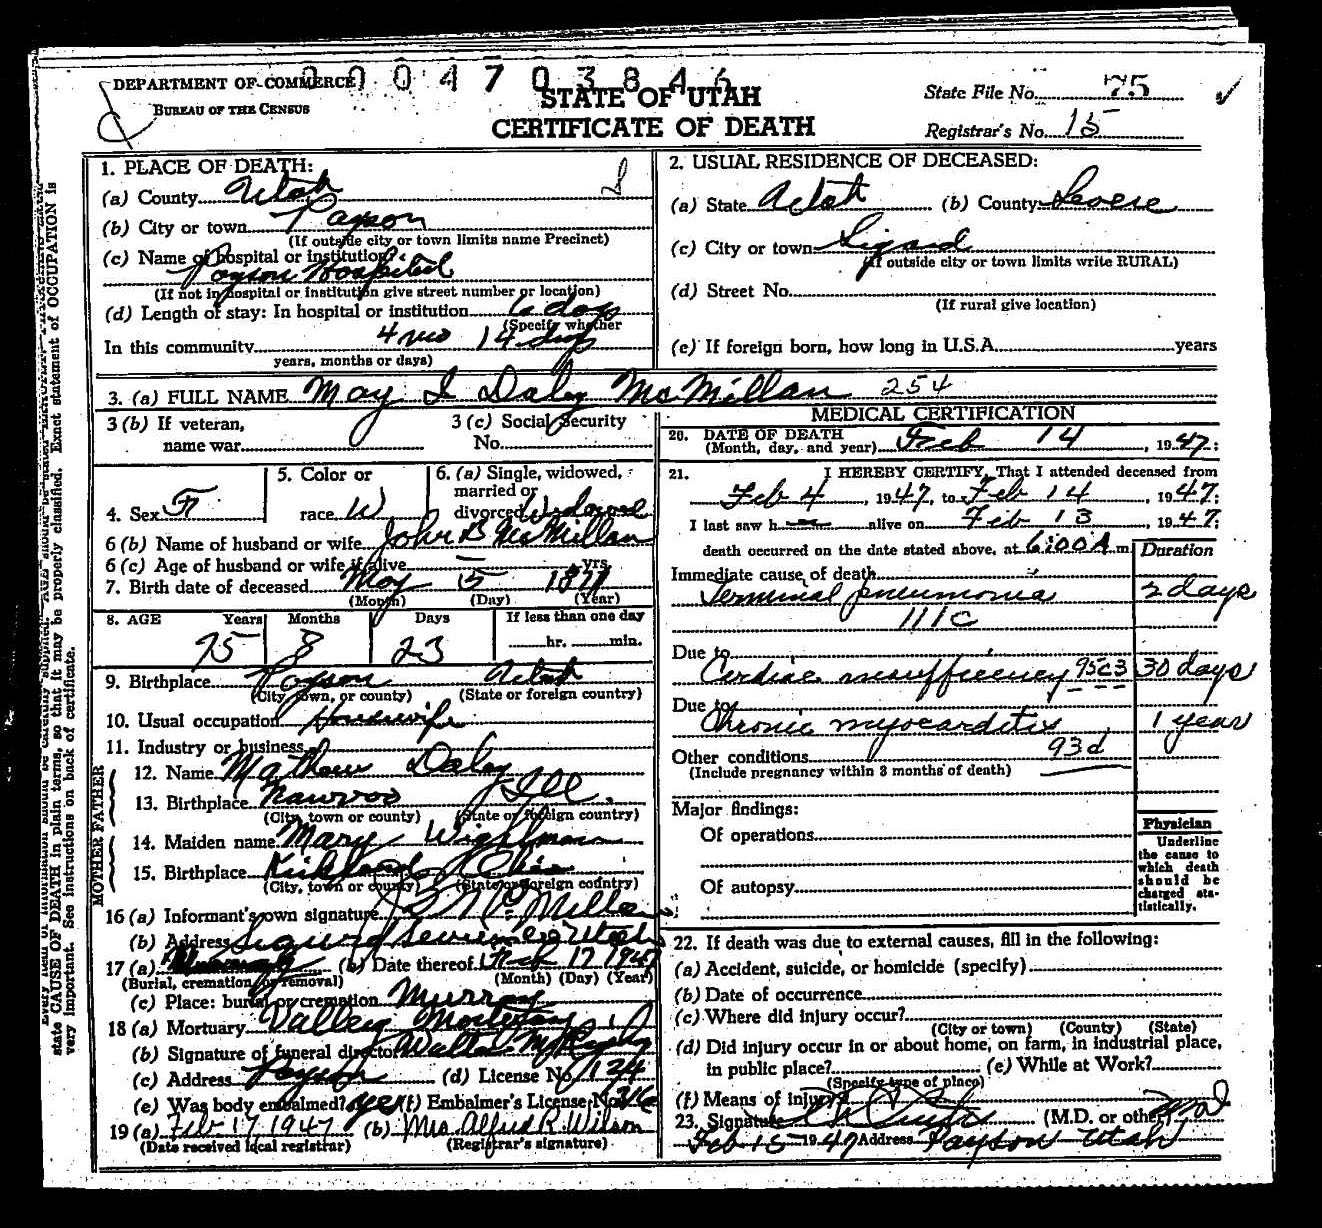 0004703846
DEPARTMENT OF COMMERCE
BUREAU OF THE CENSUS
STATE OF UTAH
CERTIFICATE OF DEATH
State File No. 75
Registrar's No. 15
1. PLACE OF DEATH:
(a) County Utah
(b) City or town Payson
(If outside city or town limits name Precinct)
(c) Name of hospital or institution:
Payson Hospital
(If not in hospital or institution give street number or location)
(d) Length of stay: In hospital or institution 6 days
(Specify whether
In this community 4 mo 14 days
years, months or days)
2. USUAL RESIDENCE OF DECEASED:
(a) State Utah (b) County Sevier
(c) City or town Sigurd
(If outside city or town limits write RURAL)
(d) Street No.
(If rural give location)
(e) If foreign born, how long in U.S.A. years
3. (a) FULL NAME May I Daley McMillan 254
3 (b) If veteran,
name war
3 (c) Social Security
No.
4. Sex F
5. Color or
race W
6. (a) Single, widowed,
married or
divorced Widowed
6 (b) Name of husband or wife John B McMillan
6 (c) Age of husband or wife if alive — yrs.
7. Birth date of deceased May 5 1871
(Month) (Day) (Year)
8. AGE Years Months Days If less than one day
75 8 23 hr. min.
9. Birthplace Payson Utah
(City, town, or county) (State or foreign country)
10. Usual occupation Housewife
11. Industry or business
FATHER
12. Name Mathew Daley
13. Birthplace Nauvoo Ill.
(City, town or county) (State or foreign country)
MOTHER
14. Maiden name Mary Wightman
15. Birthplace Kirkland Ohio
(City, town or county) (State or foreign country)
16 (a) Informant's own signature McMillan
(b) Address Sigurd Sevier Utah
17 (a) (b) Date thereof Feb 17 1947
(Burial, cremation or removal) (Month) (Day) (Year)
(c) Place: burial or cremation Murray
18 (a) Mortuary Valley Mortuary
(b) Signature of funeral director
(c) Address Payson (d) License No. 124
(e) Was body embalmed? yes (f) Embalmer's License No. 316
19 (a) Feb 17 1947 (b) Mrs. Alfred R. Wilson
(Date received local registrar) (Registrar's signature)
MEDICAL CERTIFICATION
20. DATE OF DEATH
(Month, day, and year) Feb 14, 1947;
21. I HEREBY CERTIFY, That I attended deceased from
Feb 4, 1947, to Feb 14, 1947;
I last saw h alive on Feb 13, 1947;
death occurred on the date stated above, at 6:00 A m.
Duration
Immediate cause of death
Terminal pneumonia 2 days
111c
Due to
Cardiac insufficiency 95c3 30 days
Due to
Chronic myocarditis 1 year
Other conditions 93d
(Include pregnancy within 3 months of death)
Major findings:
Of operations
Of autopsy
Physician
Underline
the cause to
which death
should be
charged sta-
tistically.
22. If death was due to external causes, fill in the following:
(a) Accident, suicide, or homicide (specify)
(b) Date of occurrence
(c) Where did injury occur?
(City or town) (County) (State)
(d) Did injury occur in or about home, on farm, in industrial place,
in public place? (e) While at Work?
(Specify type of place)
(f) Means of injury
23. Signature (M.D. or other) MD
Feb 15 1947 Address Payson Utah
state CAUSE OF DEATH in plain terms, so that it may be properly classified. Exact statement of OCCUPATION is
very important. See instructions on back of certificate.